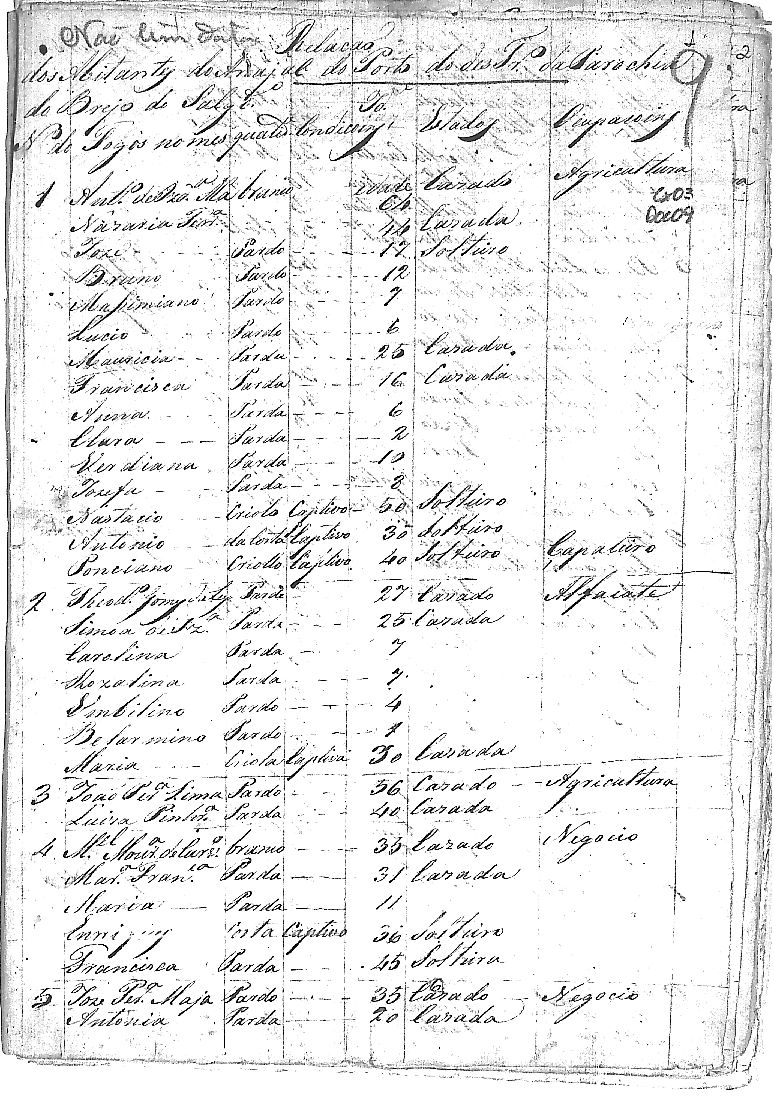 Não tem data
Relação
dos Abitantes do Anajal do Porto do des Trº da Parochia 9
do Brejo do Salgº
Nº de Fogos nomes qualis Condicoins Idade Estados Ocupacoins
1 Antº de branco 64 Cazado Agricultura
Cx03
Doc09
Nazaria 44 Cazada
Joze Pardo 17 Solturo
Bruno Pardo 12
Massimiano Pardo 7
Lucio Pardo 6
Mauricia Parda 25 Cazada
Francisca Parda 16 Cazada
Anna Parda 6
Clara Parda 2
Verdiana Parda
Jozefa Parda
Nastacio Criolo Captivo 50 Solturo
Antonio da Costa Captivo 30 Solturo
Ponciano Criollo Captivo 40 Solturo Capaturo
2 Pardo 27 Cazado Alfaiate
Simoa Parda 25 Cazada
Carolina Parda 7
Rozalina Parda 7
Umbilino Pardo 4
Belarmino Pardo
Maria Criola Captiva 30 Cazada
3 João Perª Lima Pardo 56 Cazado Agricultura
Luiza Parda 40 Cazada
4 Mel branco 35 Cazado Negocio
Marª Franca Parda 31 Cazada
Maria Parda 11
Costa Captivo 36 Solturo
Francisca Parda 45 Soltura
5 Joze Perª Maja Pardo 35 Cazado Negocio
Antónia Parda 20 Cazada